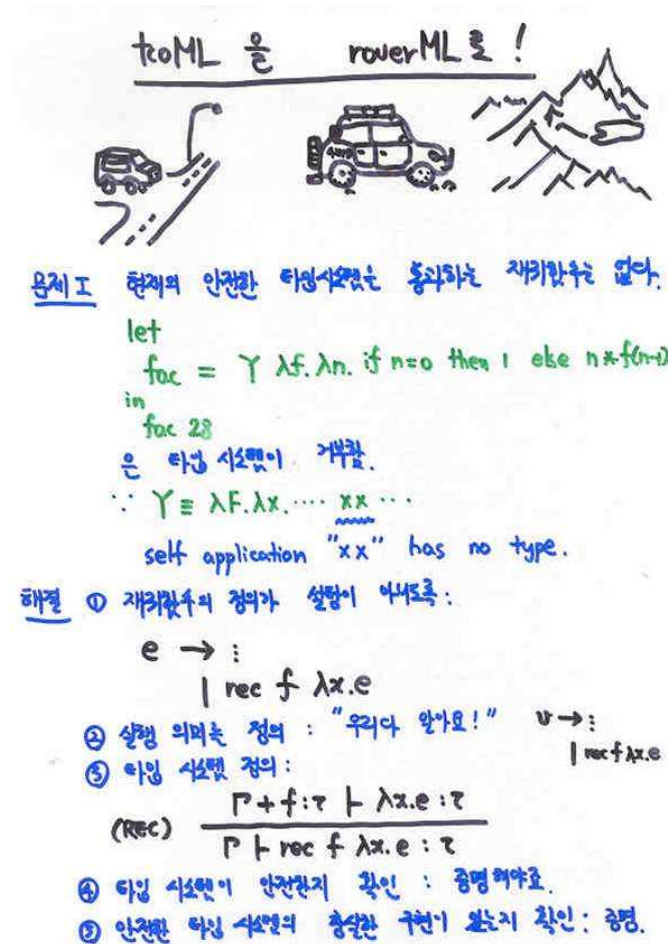 tcoML 을 roverML 로!
문제 I 현재의 안전한 타입시스템은 통과하는 재귀함수는 없다.
let
fac = Y λf.λn. if n=0 then 1 else n*f(n-1)
in
fac 23
은 타입 시스템이 거부함.
∵ Y ≡ λF.λx. ···· xx ···
self application "xx" has no type.
해결 ① 재귀함수의 정의가 설탕이 아니도록:
e → ⋮
| rec f λx.e
② 실행 의미는 정의 : "우리다 알아요!" v → ⋮
| rec f λx.e
③ 타입 시스템 정의:
Γ + f:τ ⊢ λx.e : τ
(REC)
Γ ⊢ rec f λx.e : τ
④ 타입 시스템이 안전한지 확인 : 증명해야죠.
⑤ 안전한 타입 시스템의 충실한 구현이 있는지 확인: 증명.